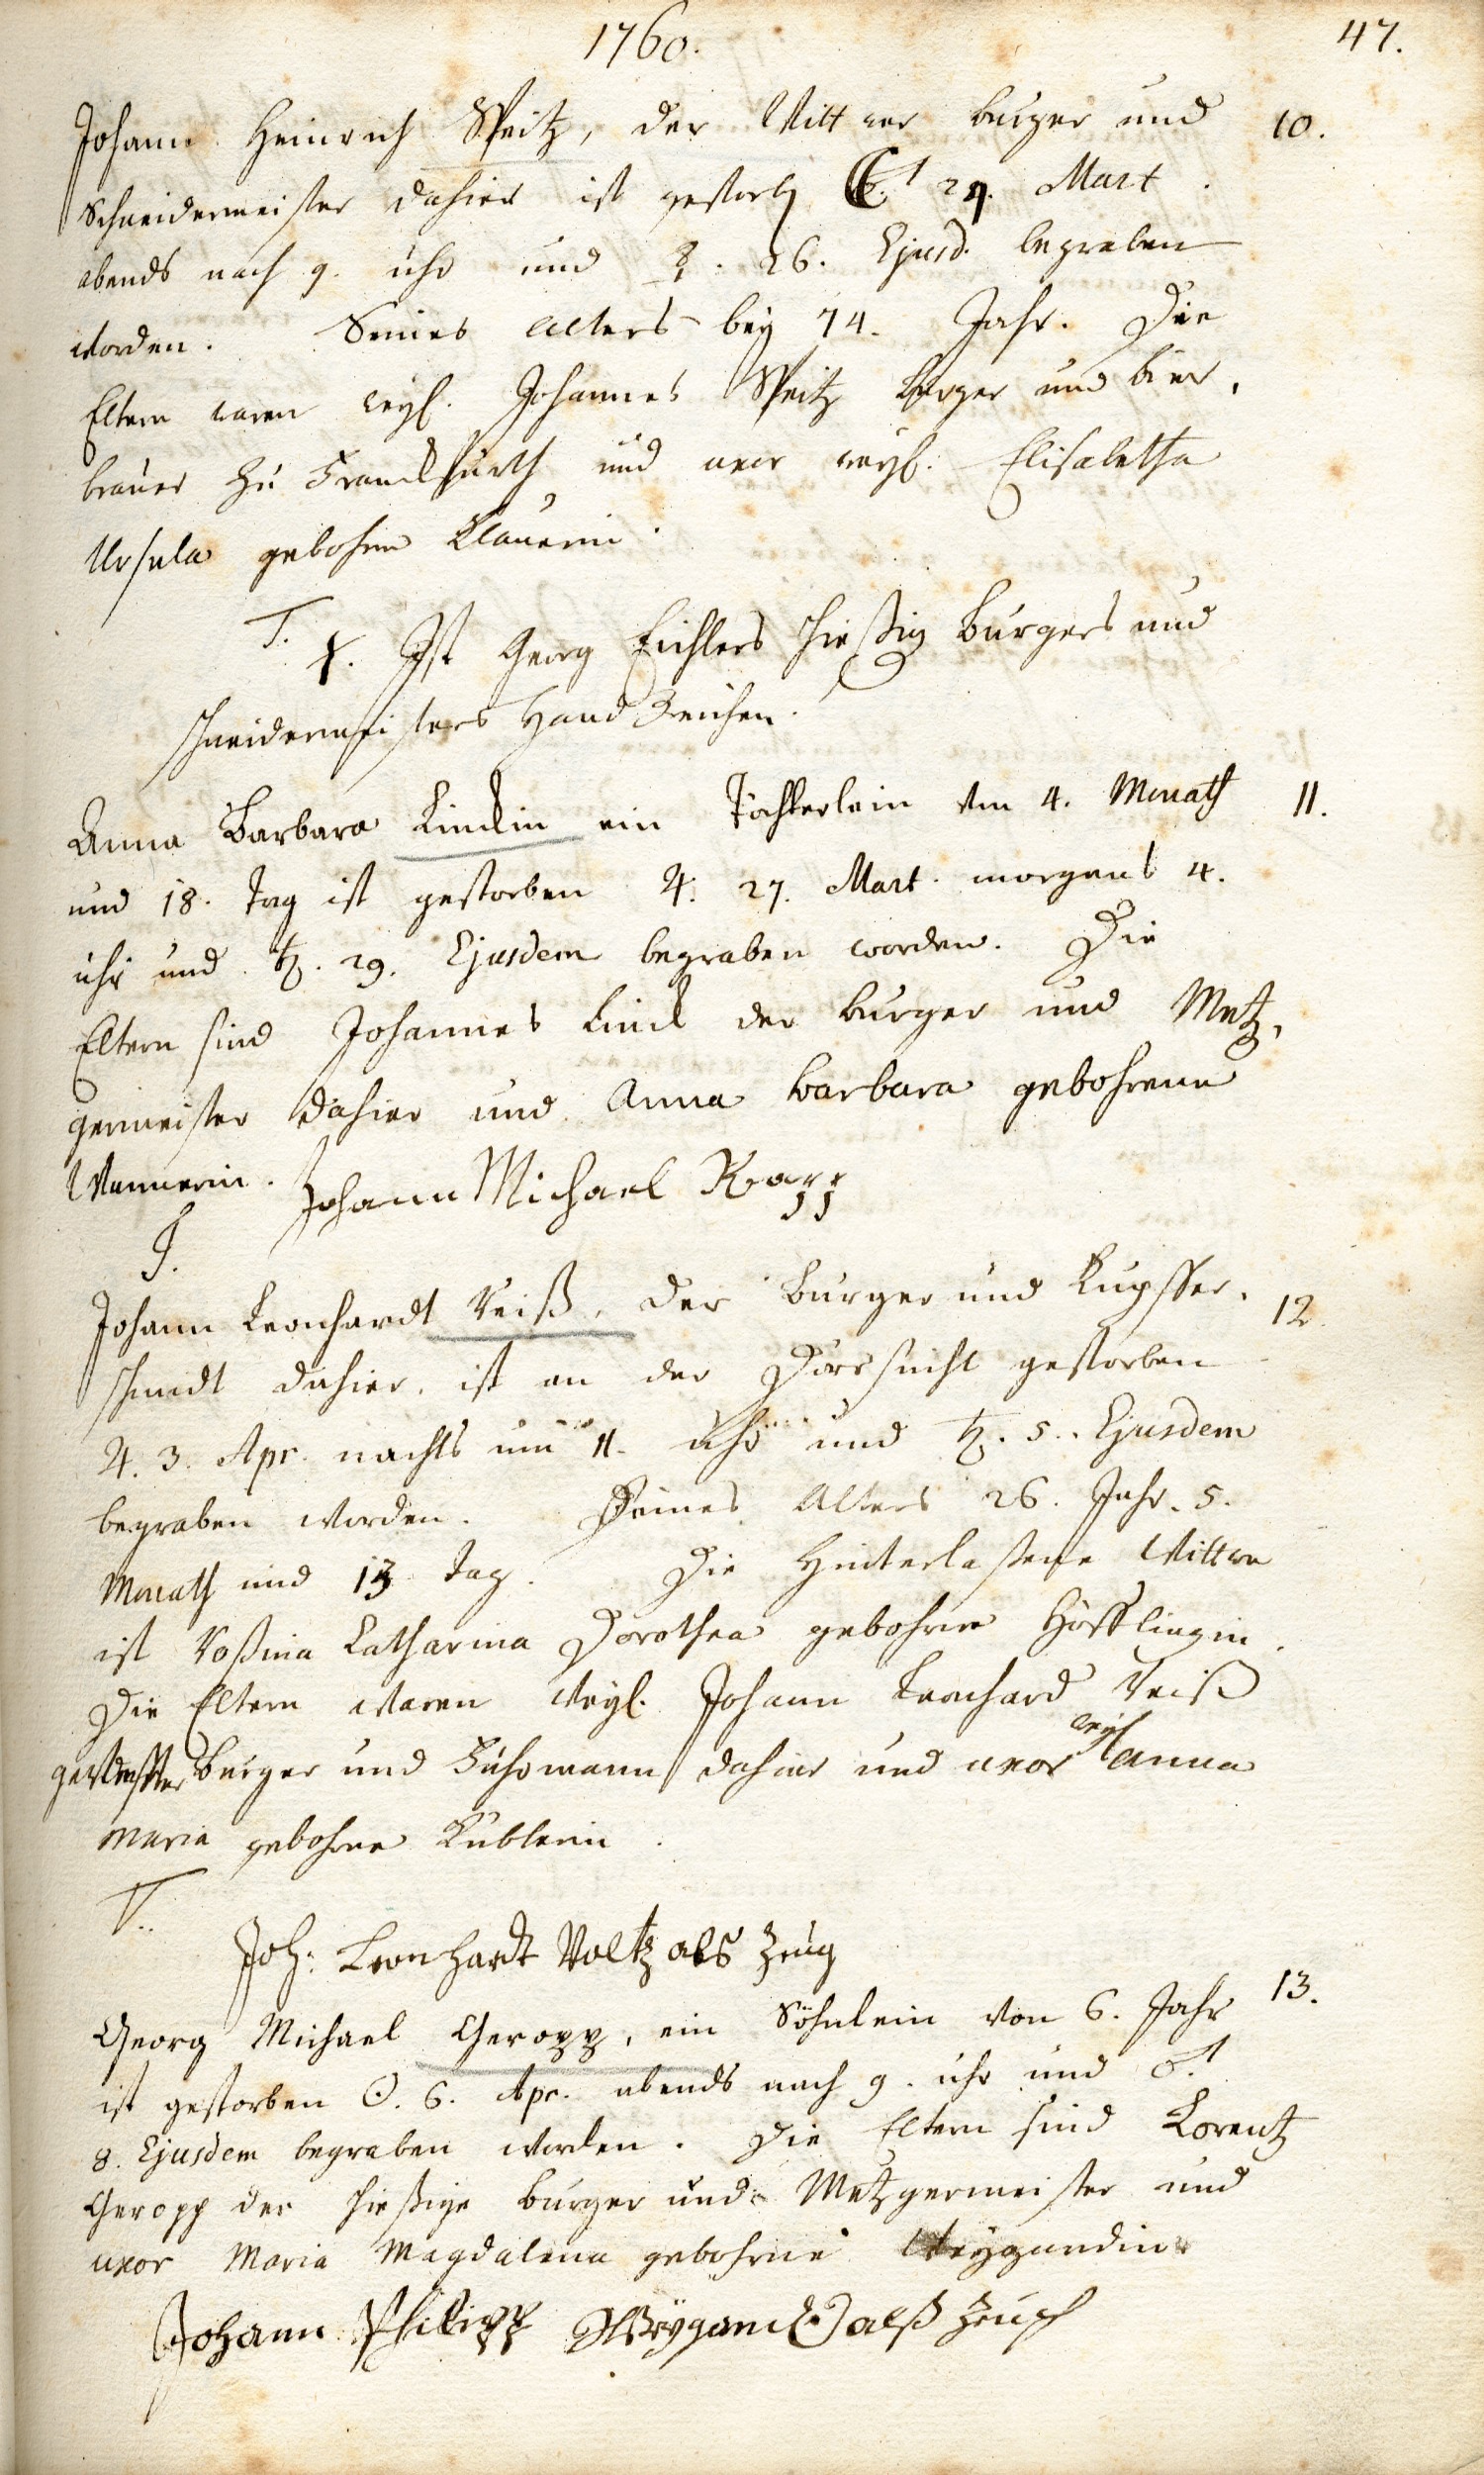 1760. 47.
Johann Heinrich Spitz, der Wittwer burger und 10.
Schneidermeister dahier ist gestorb. 24. Mart.
abends nach 9. uhr und ☿. 26. Ejusd. begraben
worden. Seines Alters bey 74. Jahr. Die
Eltern waren weyl. Johannes Spitz burger und bier,
brauer zu Franckfurth und uxor weyl. Elisabetha
Ursula gebohrne Klauerin.
T. X. Ist Georg Eichlers hiesig burgers und
schneidermeisters Hand Zeichen.
Anna Barbara Linckin ein Töchterlein von 4. Monath 11.
und 18. Tag ist gestorben ♃. 27. Mart. morgens 4.
uhr und ♄. 29. Ejusdem begraben worden. Die
Eltern sind Johannes Linck der burger und Metz,
germeister dahier und Anna barbara gebohrene
Wannerin. Johann Michael Rapp
T.
Johann Leonhardt Veiß, der Burger und Kupffer, 12.
schmidt dahier, ist an der Dörrsucht gestorben
♃. 3. Apr. nachts um 11. uhr und ♄. 5. Ejusdem
begraben worden. Seines Alters 26. Jahr. 5.
Monath und 13 Tag. Die Hinterlaßene Wittwe
ist Roßina Catharina Dorothea gebohrne Höfflingin.
Die Eltern waren weyl. Johann Leonhard Veiß
burger und Fuhrmann dahier und uxor weyl. Anna
Maria gebohrne Küblerin.
T.
Joh: Leonhardt Voltz als Zeug
Georg Michael Geropp, ein Söhnlein von 6. Jahr 13.
ist gestorben ☉. 6. Apr. abends nach 9. uhr und ♂.
8. Ejusdem begraben worden. Die Eltern sind Lorentz
Geropp der hiesige burger und Metzgermeister und
uxor Maria Magdalena gebohrne Weygandin
Johann Philipp Weygandt alß Zeug